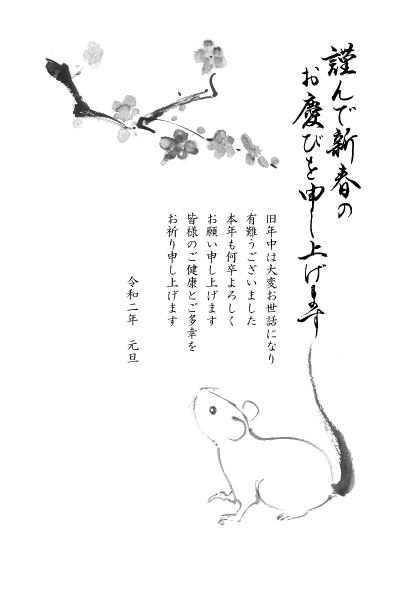 謹んで新春の
お慶びを申し上げます
旧年中は大変お世話になり
有難うございました
本年も何卒よろしく
お願い申し上げます
皆様のご健康とご多幸を
お祈り申し上げます
令和二年 元旦